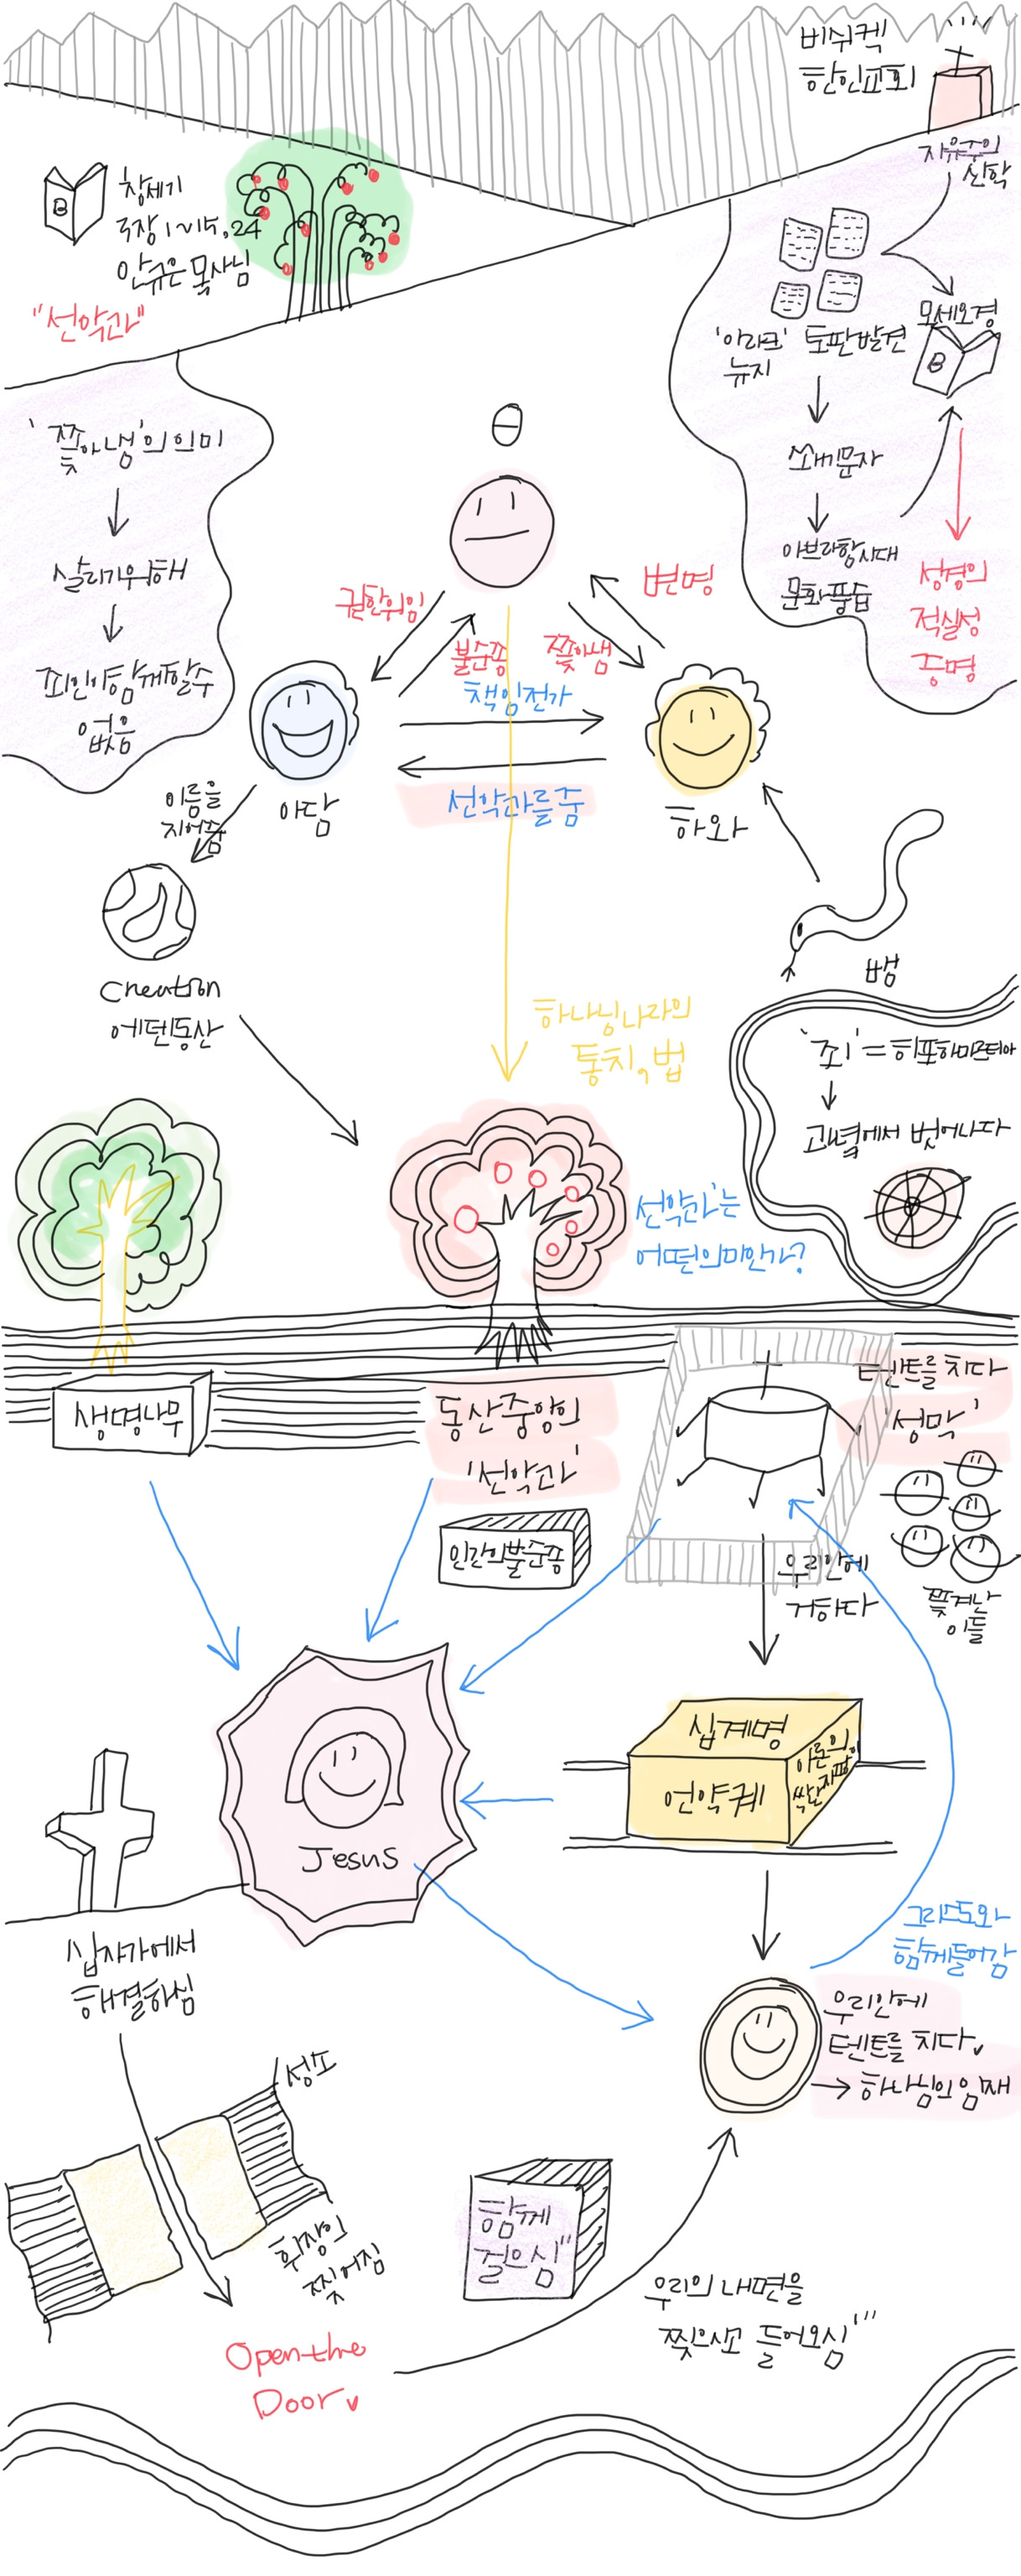 비쉬켁
한인교회
자유주의
신학
B
창세기
3장 1~15, 24
안규은 목사님
"선악과"
모세오경
B
토판발견
쐐기문자
아브라함시대
문화풍습
성경의
적실성
증명
'쫓아냄'의 의미
살리기위해
죄인이함께할수
없음
권한위임
불순종
쫓아냄
변명
책임전가
선악과를줌
아담
하와
이름을
지어줌
뱀
Creation
에덴동산
하나님나라의
통치, 법
과녁에서 벗어나다
선악과'는
어떤의미인가?
생명나무
동산중앙의
'선악과'
인간의불순종
텐트를 치다
'성막'
쫓겨난
이들
우리안에
거하다
십계명
언약궤
아론의
싹난지팡이
Jesus
십자가에서
해결하심
그리스도와
함께들어감
우리안에
텐트를 치다
→ 하나님의임재
성소
휘장의
찢어짐
함께
걸으심"
우리의 내면을
찢으시고 들어오심"'
Open the
Door